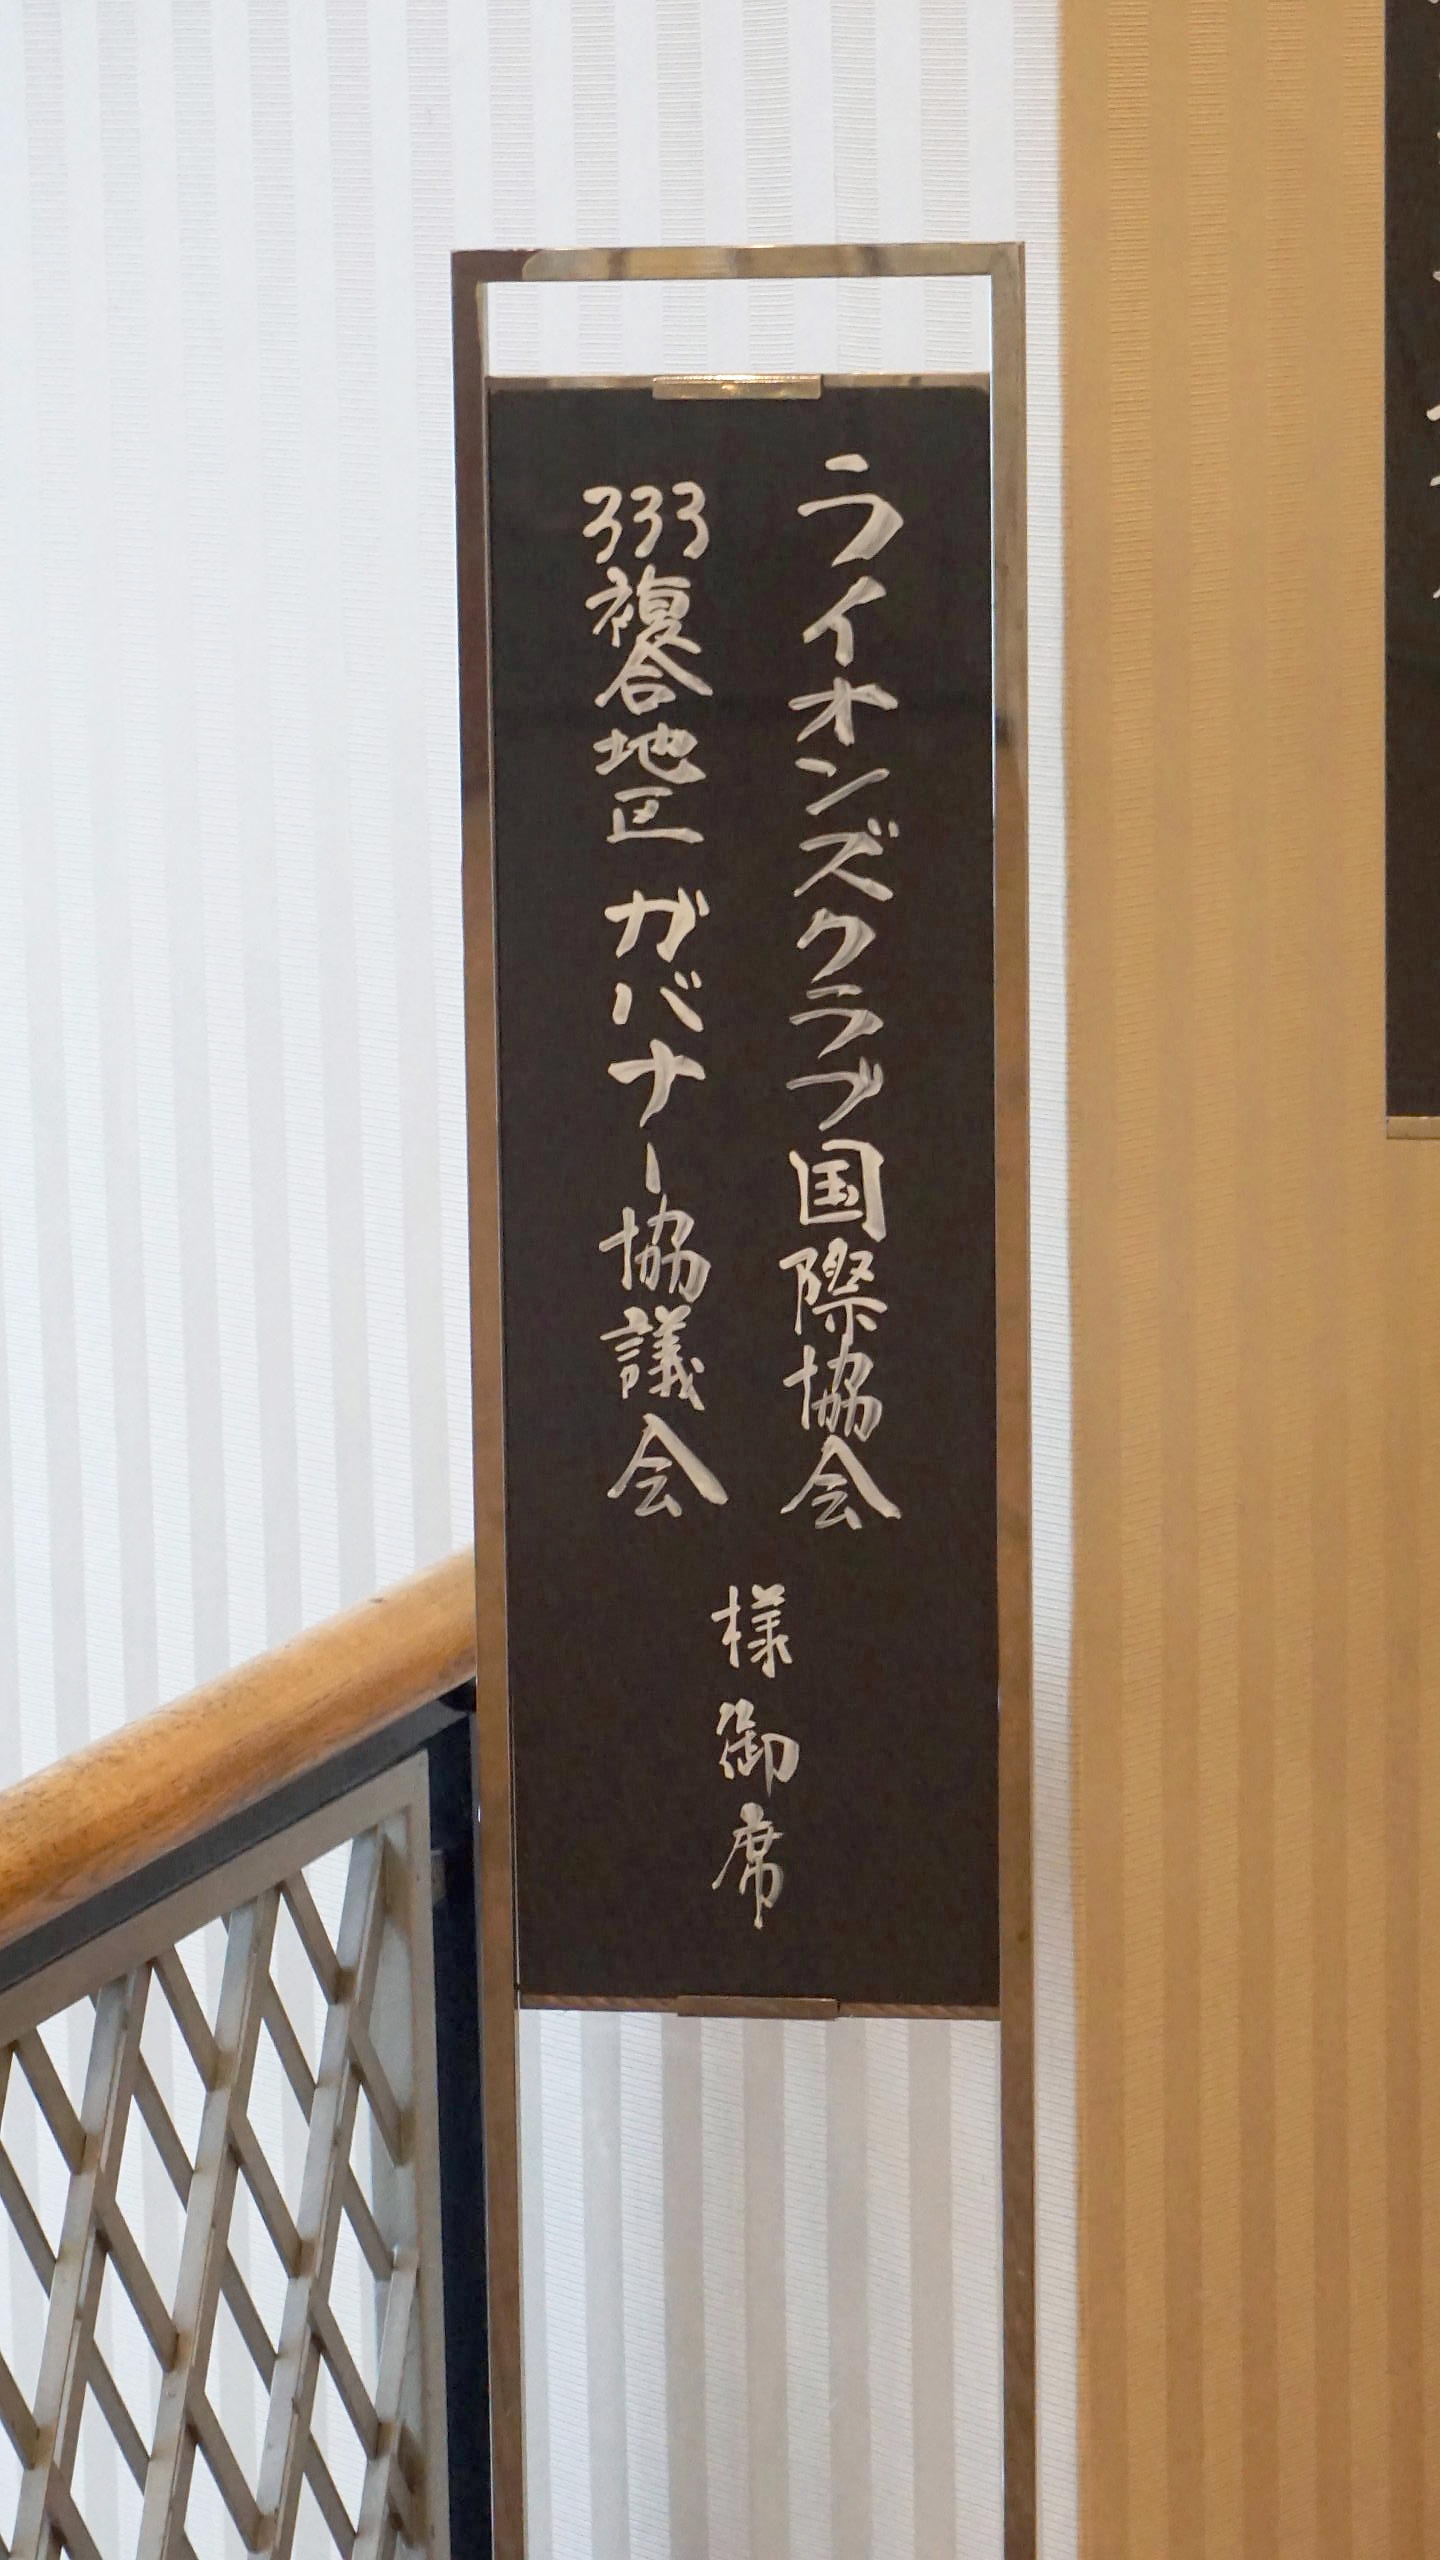 ライオンズクラブ国際協会
333複合地区 ガバナー協議会
様 御席